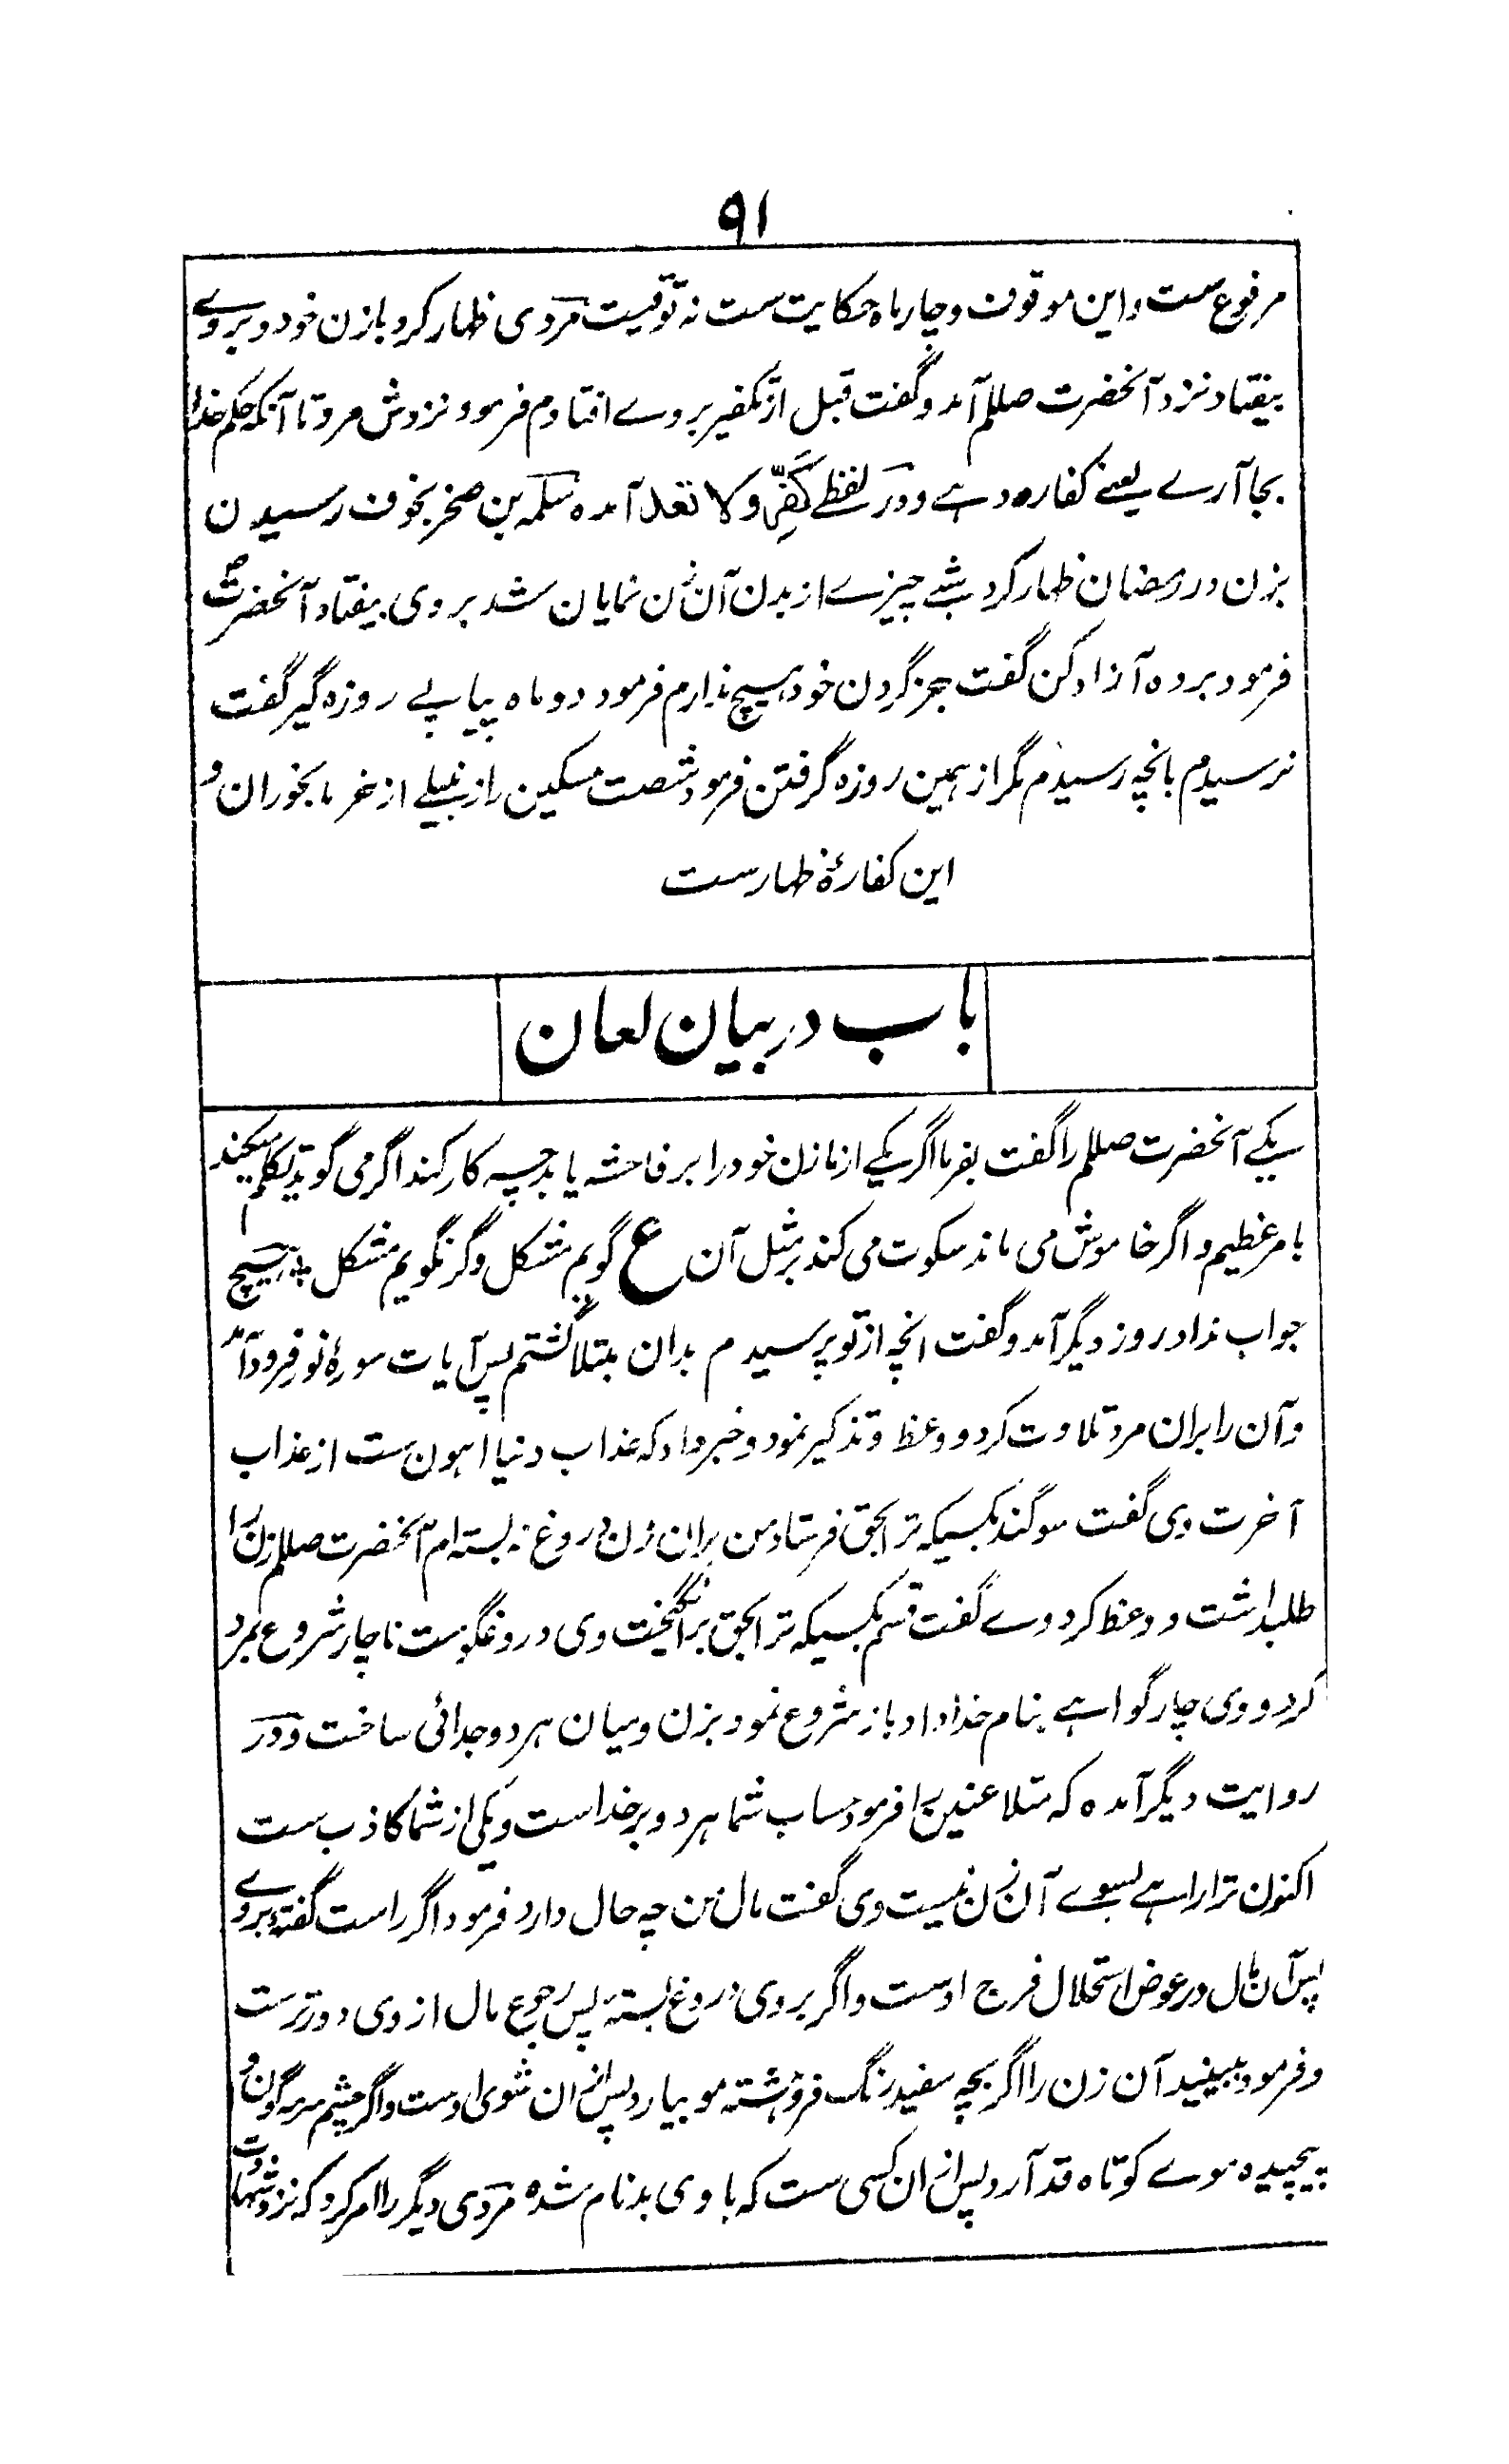 ۹۱
مرفوع ست واین موقوف وچار ماه حکایت ست نه توقیت مردی ظهار کرد با زن خود و بروے
بیفتاد نزد آنحضرت صللم آمد و گفت قبل از تکفیر بروے افتادم فرمود نزدش مرو تا آنکه حکم خدا
بجا آرے یعنے کفاره دہے ودر لفظے كَفِّر ولا تعد آمده سلمه بن صخر بخوف رسیدن
بزن در رمضان ظهار کرد شبے چیزے از بدن آن زن نمایان شد بروی بیفتاد آنحضرت ص
فرمود برده آزاد کن گفت جز گردن خود ہیچ ندارم فرمود دو ماه پیاپے روزه گیر گفت
نرسیدم بانچه رسیدم مگر از ہمین روزه گرفتن فرمود شصت مسکین را زنبیلے از خرما بخوران و
این کفارۂ ظهارست
باب در بیان لعان
یکے آنحضرت صللم را گفت بفرما اگر یکے از ما زن خود را بر فاحشه یابد چه کار کند اگر می گوید تکلم میکند
بامر عظیم و اگر خاموش می ماند سکوت می کند بر مثل آن ع گویم مشکل و گر نگویم مشکل ٭ ہیچ
جواب نداد روز دیگر آمد و گفت انچه از تو پرسیدم بدان مبتلا گشتم پس آیات سورۂ نور فرود آمد
و آن را بران مرد تلاوت کرد و وعظ و تذکیر نمود و خبر داد که عذاب دنیا اہون ست از عذاب
آخرت وی گفت سوگند بکسیکه ترا بحق فرستاد من بران زن دروغ نه بسته ام آنحضرت صللم زن را
طلبداشت و وعظ کرد وے گفت قسم بکسیکه ترا بحق برانگیخت وی دروغگوست ناچار شروع بمرد
کرد و وی چار گواہے بنام خدا داد باز شروع نمود بزن و میان ہردو جدائی ساخت ودر
روایت دیگر آمده که متلاعنین را فرمود حساب شما ہردو بر خداست و یکی از شما کاذب ست
اکنون ترا راہے بسوے آن زن نیست وی گفت مال من چه حال دارد فرمود اگر راست گفته بروے
پس آن مال در عوض استحلال فرج اوست و اگر بروی دروغ بسته پس رجوع مال از وی دورترست
و فرمود ببینید آن زن را اگر بچه سفید رنگ فروہشته مو بیارد پس ازان شوی اوست و اگر چشم سرمه گون و
پیچیده موے کوتاه قد آرد پس ازان کسی ست که با وی بدنام شده مردی دیگر را امر کرد که نزد شهادت